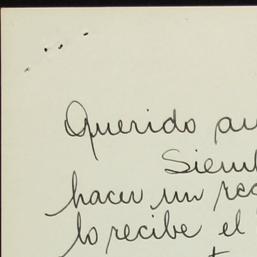 Querido au
Siemb
hacer un rec
lo recibe el